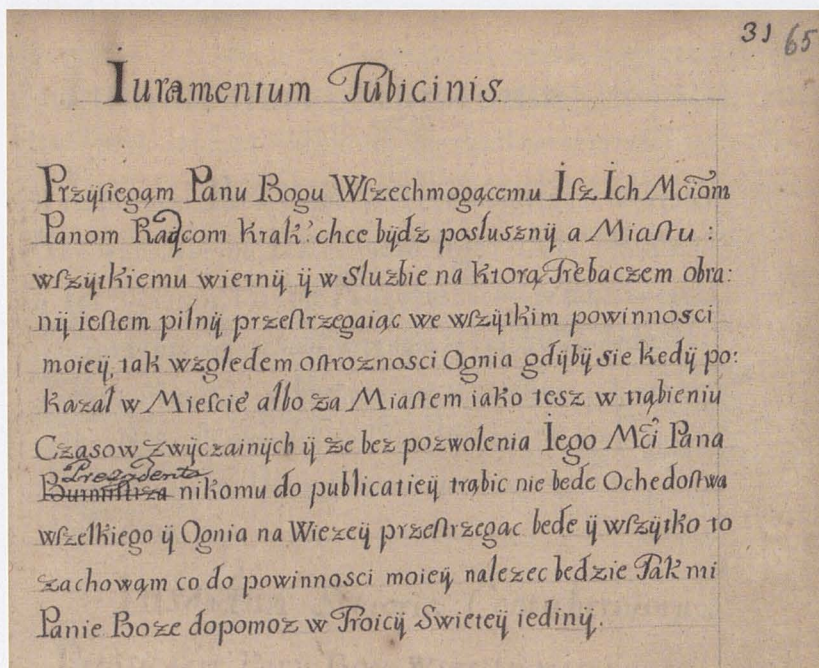 31 65
Iuramentum Tubicinis
Przÿsiegąm Panu Bogu Wſzechmogącemu Iſz Ich Mćiom
Panom Radcom Krak: chce bÿdz posłusznÿ a Miaſtu :
wſzÿtkiemu wiernÿ ÿ w Sluzbie na ktorą Trebaczem obra:
nÿ ieſtem pilnÿ przeſtrzegaiąc we wſzÿtkim powinnosci
moieÿ, tak wzgledem oſtroznosci Ognia gdÿbÿ sie kedÿ po:
kazał w Mieſcie albo za Miaſtem iako tesz w trąbieniu
Cząsow zwÿczainÿch ÿ ze bez pozwolenia Iego Mći Pana
Prezÿdenta
Burmiſtrza nikomu do publicatieÿ trąbic nie bede Ochedoſtwa
wſzelkiego ÿ Ognia na Wiezeÿ przeſtrzegac bede ÿ wſzÿtko to
zachowąm co do powinnosci moieÿ nalezec bedzie Tak mi
Panie Boze dopomoz w Troicÿ Swieteÿ iedinÿ.